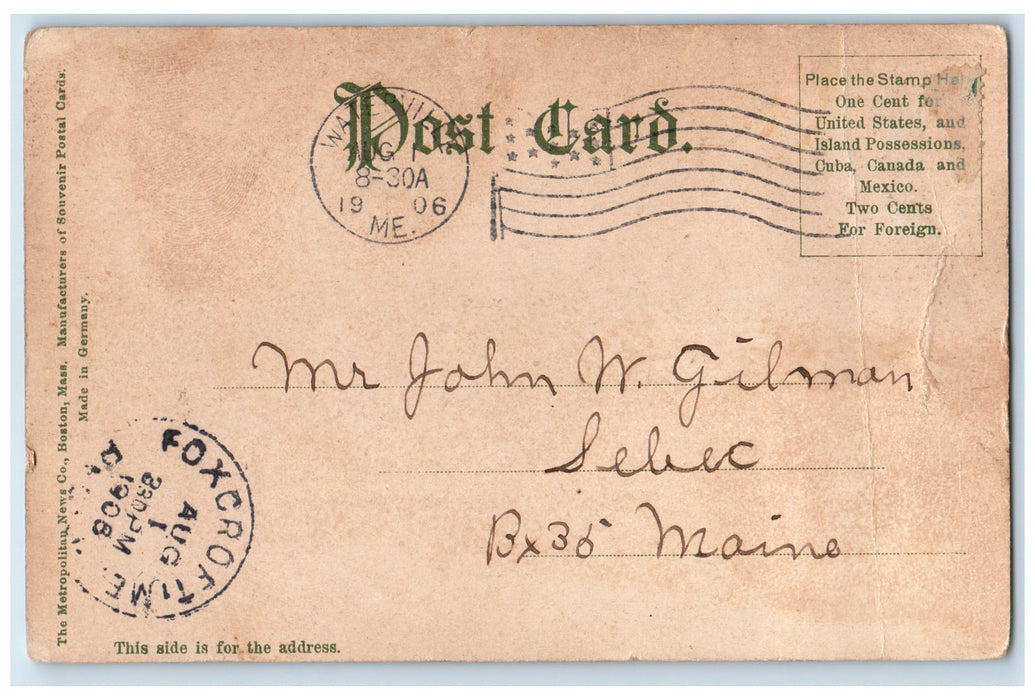 Post Card.
Place the Stamp Here
One Cent for
United States, and
Island Possessions,
Cuba, Canada and
Mexico.
Two Cents
For Foreign.
WATERVILLE
AUG 1
8-30A
19 06
ME.
Mr John W. Gilman
Sebec
Bx 35 Maine
FOXCROFT, ME.
AUG
1
330PM
1906
This side is for the address.
The Metropolitan News Co., Boston, Mass. Manufacturers of Souvenir Postal Cards.
Made in Germany.